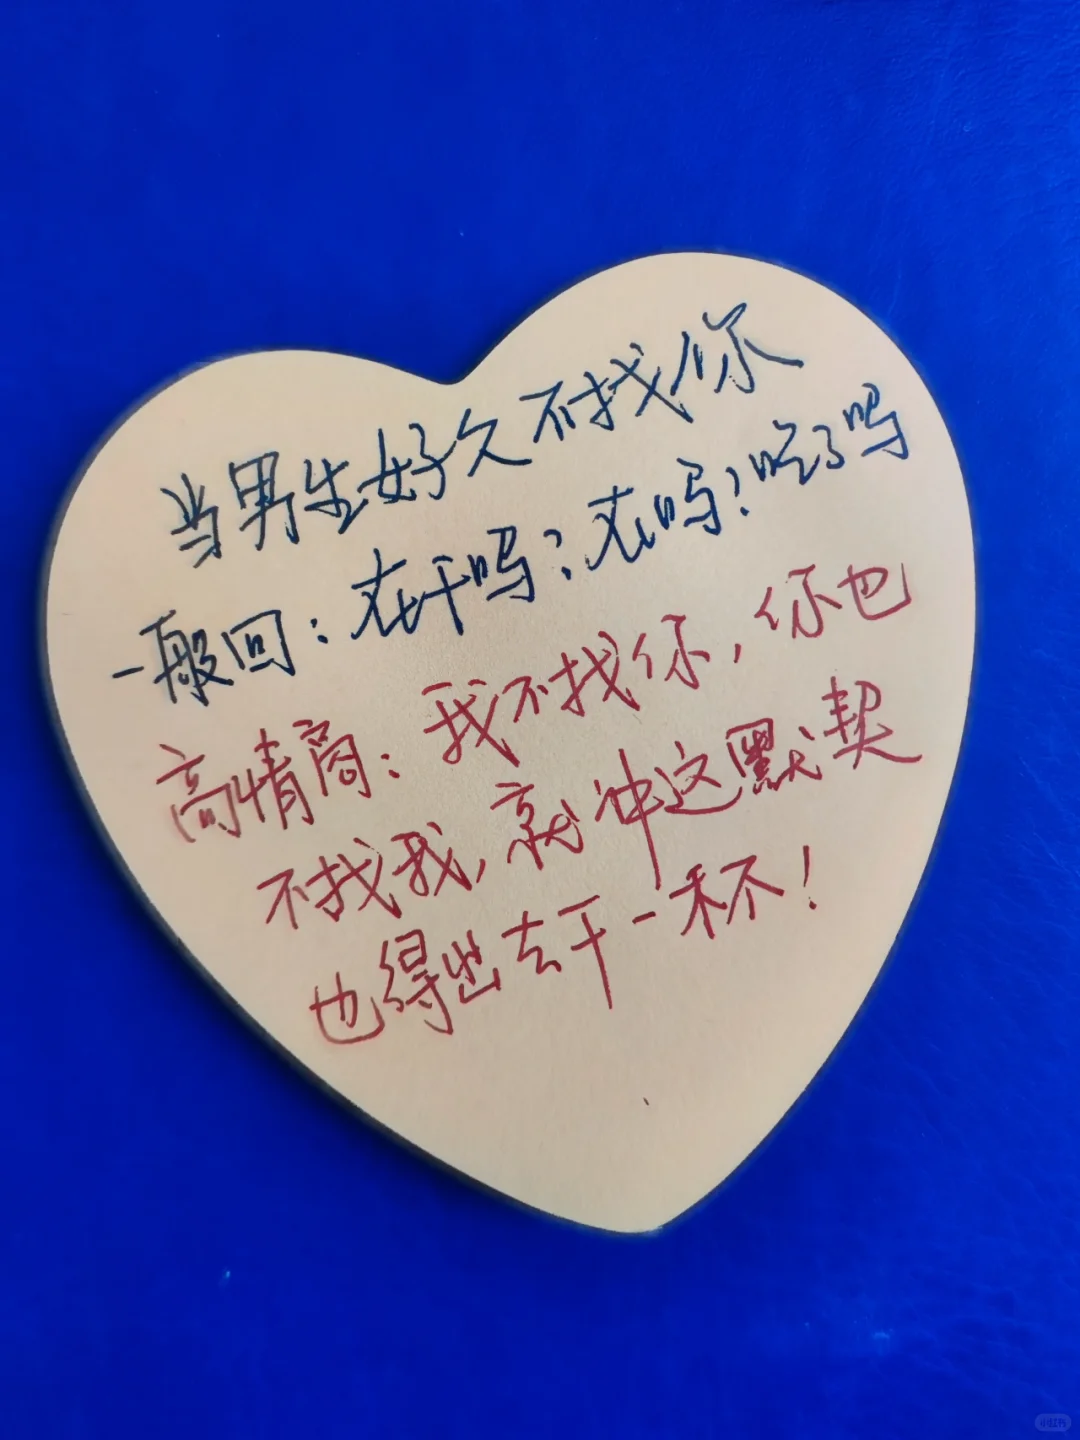 当男生好久不找你
一般回：在干吗？在吗？吃了吗
高情商：我不找你，你也
不找我，就冲这默契
也得出去干一杯！
小红书